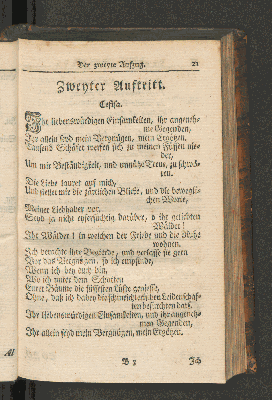 Der zweyte Aufzug. 21
Zweyter Auftritt.
Celisa.
Ihr liebenswürdigen Einsamkeiten, ihr angeneh-
me Gegenden,
Ihr allein seyd mein Vergnügen, mein Ergötzen.
Tausend Schäfer werfen sich zu meinen Füßen nie-
der,
Um mir Beständigkeit, und unnütze Treu, zu schwö-
ren.
Die Liebe lauret auf mich,
Und stellet mir die zärtlichen Blicke, und die beweglich-
sten Worte,
Meiner Liebhaber vor.
Seyd ja nicht eifersüchtig darüber, o ihr geliebten
Wälder!
Ihr Wälder! in welchen der Friede und die Ruhe
wohnen.
Ich verachte ihre Begierde, und verlasse sie gern
Vor das Vergnügen, so ich empfinde,
Wenn ich bey euch bin,
Wo ich unter dem Schatten
Eurer Bäume die süssesten Lüste geniesse,
Ohne, daß ich dabey die schmeichelnden Leidenschaf-
ten
Ihr liebenswürdigen Einsamkeiten, und ihr angeneh-
men Gegenden,
Ihr allein seyd mein Vergnügen, mein Ergötzen.
B 3 Ich